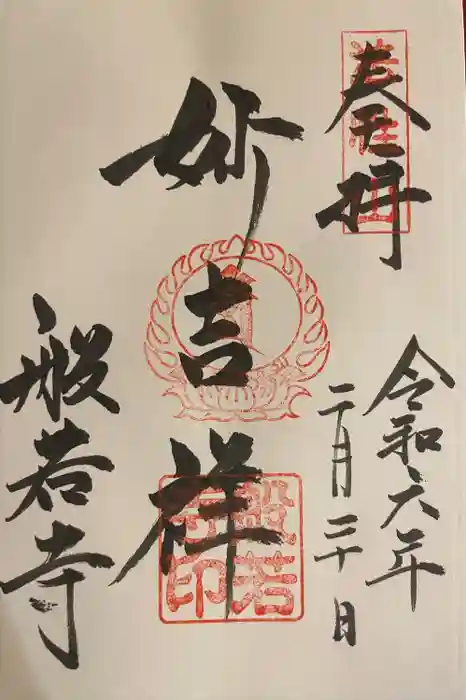 奉拝
法性山
令和六年
二月三十日
妙吉祥
般若寺印
般若寺